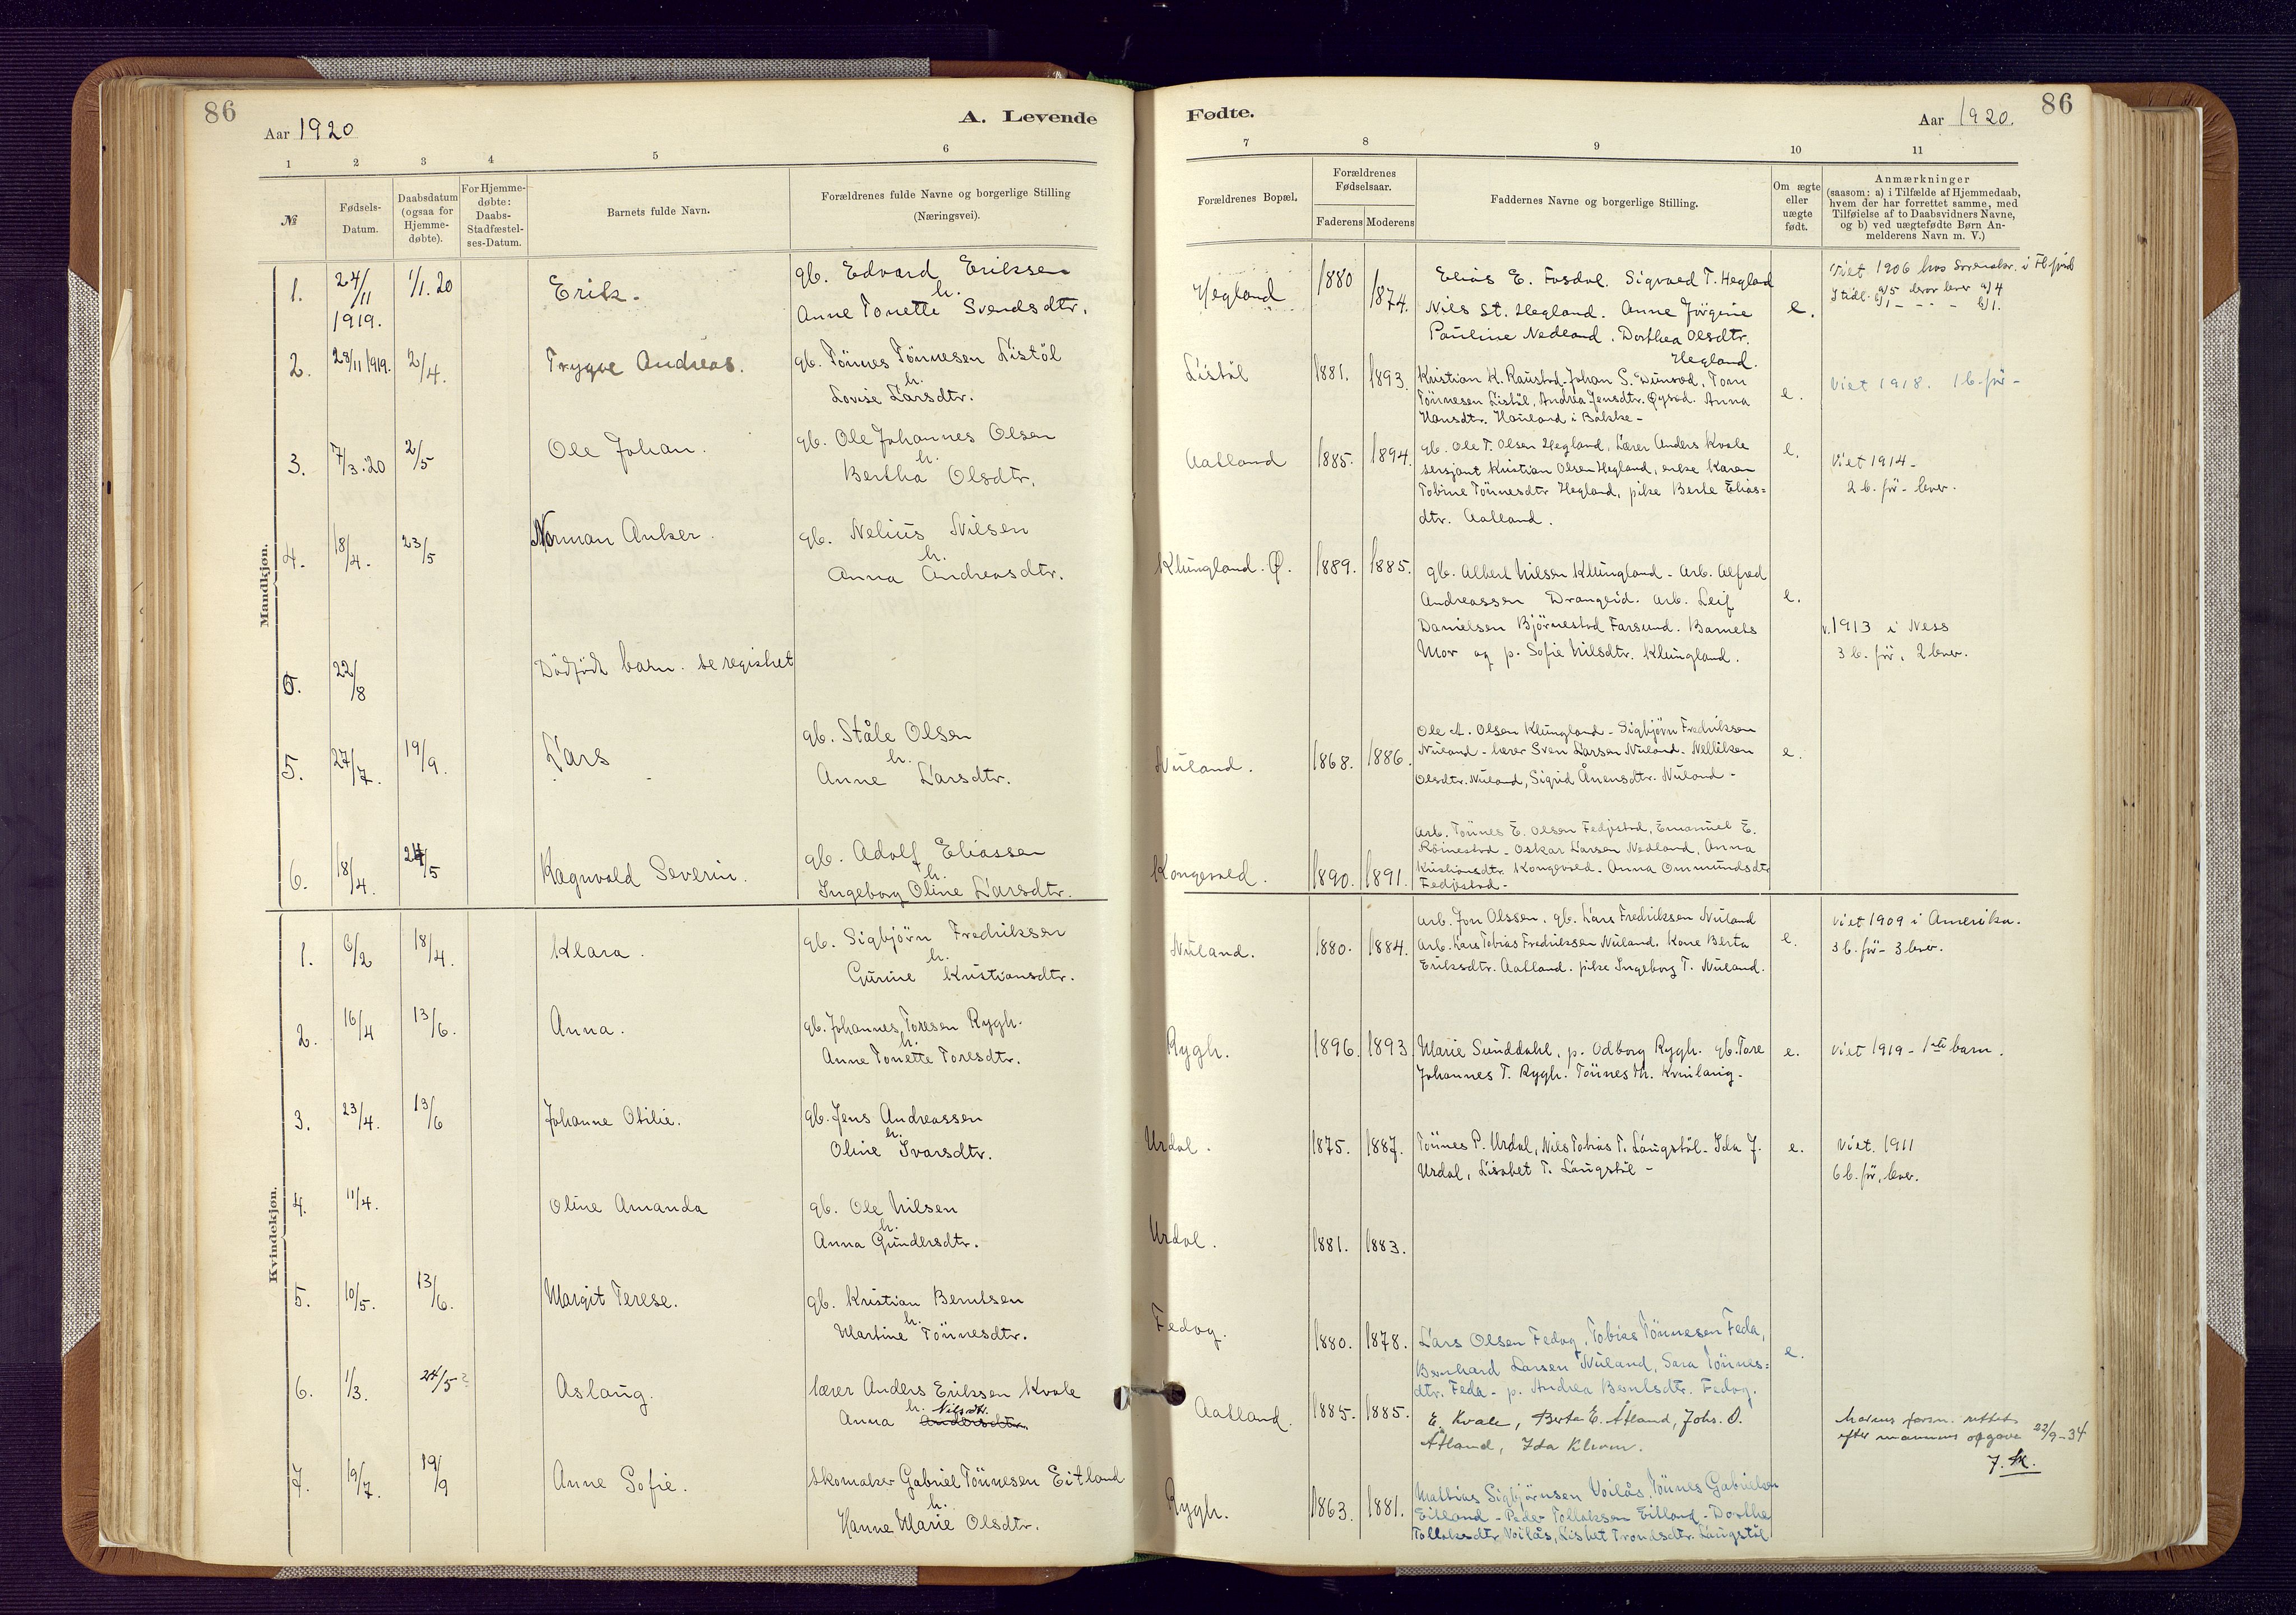 86
Aar 1920
A. Levende
1 2 3 4 5 6
№
Fødsels-
Datum.
Daabsdatum
(ogsaa for
Hjemme-
døbte).
For Hjemme-
døbte:
Daabs-
Stadfæstel-
ses-Datum.
Barnets fulde Navn.
Forældrenes fulde Navne og borgerlige Stilling
(Næringsvei).
Mandkjøn.
1. 24/11 1919. 1/1. 20 Erik. gb. Edvard Eriksen
h.
Anne Tonette Svendsdtr.
2. 28/11 1919. 2/4. Trygve Andreas. gb. Tönnes Tönnesen Listöl
h.
Lovise Larsdtr.
3. 7/3. 20 2/5 Ole Johan. gb. Ole Johannes Olsen
h.
Bertha Olsdtr.
4. 18/4. 23/5 Norman Anker. gb. Nelius Nilsen
h.
Anna Andreasdtr.
22/8 Dödfödt barn. se registret
5. 27/7. 19/9. Lars gb. Ståle Olsen
h.
Anne Larsdtr.
6. 18/4. 24/5 Ragnvald Severin. gb. Adolf Eliassen
h.
Ingeborg Oline Larsdtr.
Kvindekjøn.
1. 6/2 18/4. Klara. gb. Sigbjörn Fredriksen
h.
Gurine Kristiansdtr.
2. 16/4 13/6. Anna. gb. Johannes Toresen Rygh.
h.
Anne Tonette Toresdtr.
3. 23/4. 13/6 Johanne Otilie. gb. Jens Andreassen
h.
Oline Ivarsdtr.
4. 11/4. Oline Amanda gb. Ole Nilsen
h.
Anna Gundersdtr.
5. 10/5. 13/6. Margit Terese. gb. Kristian Berntsen
h.
Martine Tönnesdtr.
6. 1/3. 24/5 ? Aslaug. lærer Anders Eriksen Kvale
h. Nilsdtr.
Anna Andersdtr.
7. 19/7. 19/9 Anne Sofie. Skomaker Gabriel Tönnesen Eitland
h.
Hanne Marie Olsdtr.
Fødte.
Aar 1920.
86
7 8 9 10 11
Forældrenes Bopæl.
Forældrenes
Fødselsaar.
Faderens Moderens
Faddernes Navne og borgerlige Stilling.
Om ægte
eller
uægte
født.
Anmærkninger
(saasom: a) i Tilfælde af Hjemmedaab,
hvem der har forrettet samme, med
Tilføielse af to Daabsvidners Navne,
og b) ved uægtefødte Børn An-
melderens Navn m. V.)
Hegland 1880 1874. Elias E. Fosdal. Sigvaed T. Hegland
Nils St. Hegland. Anne Jörgine
Pauline Nedland. Dorthea Olsdtr.
Hegland.
e.
Viet 1906 hos
Listöl 1881. 1893. Kristian K. Raustad. Johan S.
Tönnesen Listöl, Andrea Jensdtr. Anna
Hansdtr. Hauland i Bakke -
e.
Viet 1918. 1 b. för -
Aatland 1885. 1894. gb. Ole T. Olsen Hegland, Lærer Anders Kvale
sersjant Kristian Olsen Hegland, enke Karen
Tobine Tönnesdtr Hegland, pike Berte Elias=
dtr. Aatland.
e.
Viet 1914 -
2 b. för - lever.
Klungland. Ø. 1889. 1885. gb. Albert Nilsen Klungland - Arb. Alfred
Andreassen Drangeid. arb. Leif
Danielsen Björnestad Farsund. Barnets
Mor og p. Sofie Nilsdtr. Klungland.
e.
v. 1913 i Ness
3 b. för, 2 lever.
Nuland. 1868. 1886. Ole A. Olsen Klungland - Sigbjörn Fredriksen
Nuland - lærer Sven Larsen Nuland. Nelliken
Olsdtr. Nuland, Sigrid Ånensdtr. Nuland -
e.
Kongevold. 1890. 1891. arb. Tönnes E. Olsen Fedjestad, Emanuel E.
Röinestad - Oskar Larsen Nedland, Anna
Kristiansdtr. Kongevoed - Anna Ommundsdtr
Fedjestad -
Nuland. 1880. 1884. arb. Jon Olssen. gb. Lars Fredriksen Nuland
arb. Lars Tobias Fredriksen Nuland. Kone Berta
Eriksdtr. Aatland. pike Ingeborg T. Nuland.
e.
Viet 1909 i Amerika.
3 b. för - 3 lever.
Rygh. 1896. 1893 Marie Sunddahl, p. Odborg Rygh. gb. Tore
Johannes T. Rygh. Tönnes M. Kvinlaug -
e.
Viet 1919 - 1ste barn.
Urdal. 1875. 1887. Tönnes P. Urdal, Nils Tobias T. Laugstöl - Ida J.
Urdal, Lisabet T. Laugstöl -
e.
Viet. 1911
6 b. för, lever.
Urdal. 1881. 1883.
Fedog. 1880. 1878. Lars Olsen Fedog, Tobias Tönnesen Feda,
Bernhard Larsen Nuland, Sara Tönnes=
dtr. Feda - p. Andrea Berntsdtr. Fedog.
e.
Aatland. 1885. 1885. E. Kvale, Berta E. Åtland, Johs. O.
Åtland, Ida
Morens farsn. rettet
efter mannens opgave 22/9-34
Rygh. 1863. 1881. Mathias Sigbjörnsen Voilås, Tönnes Gabrielsen
Eitland - Peder Tollaksen Eitland - Dorthe
Tollaksdtr. Voilås, Lisbet Trondsdtr. Laugstöl